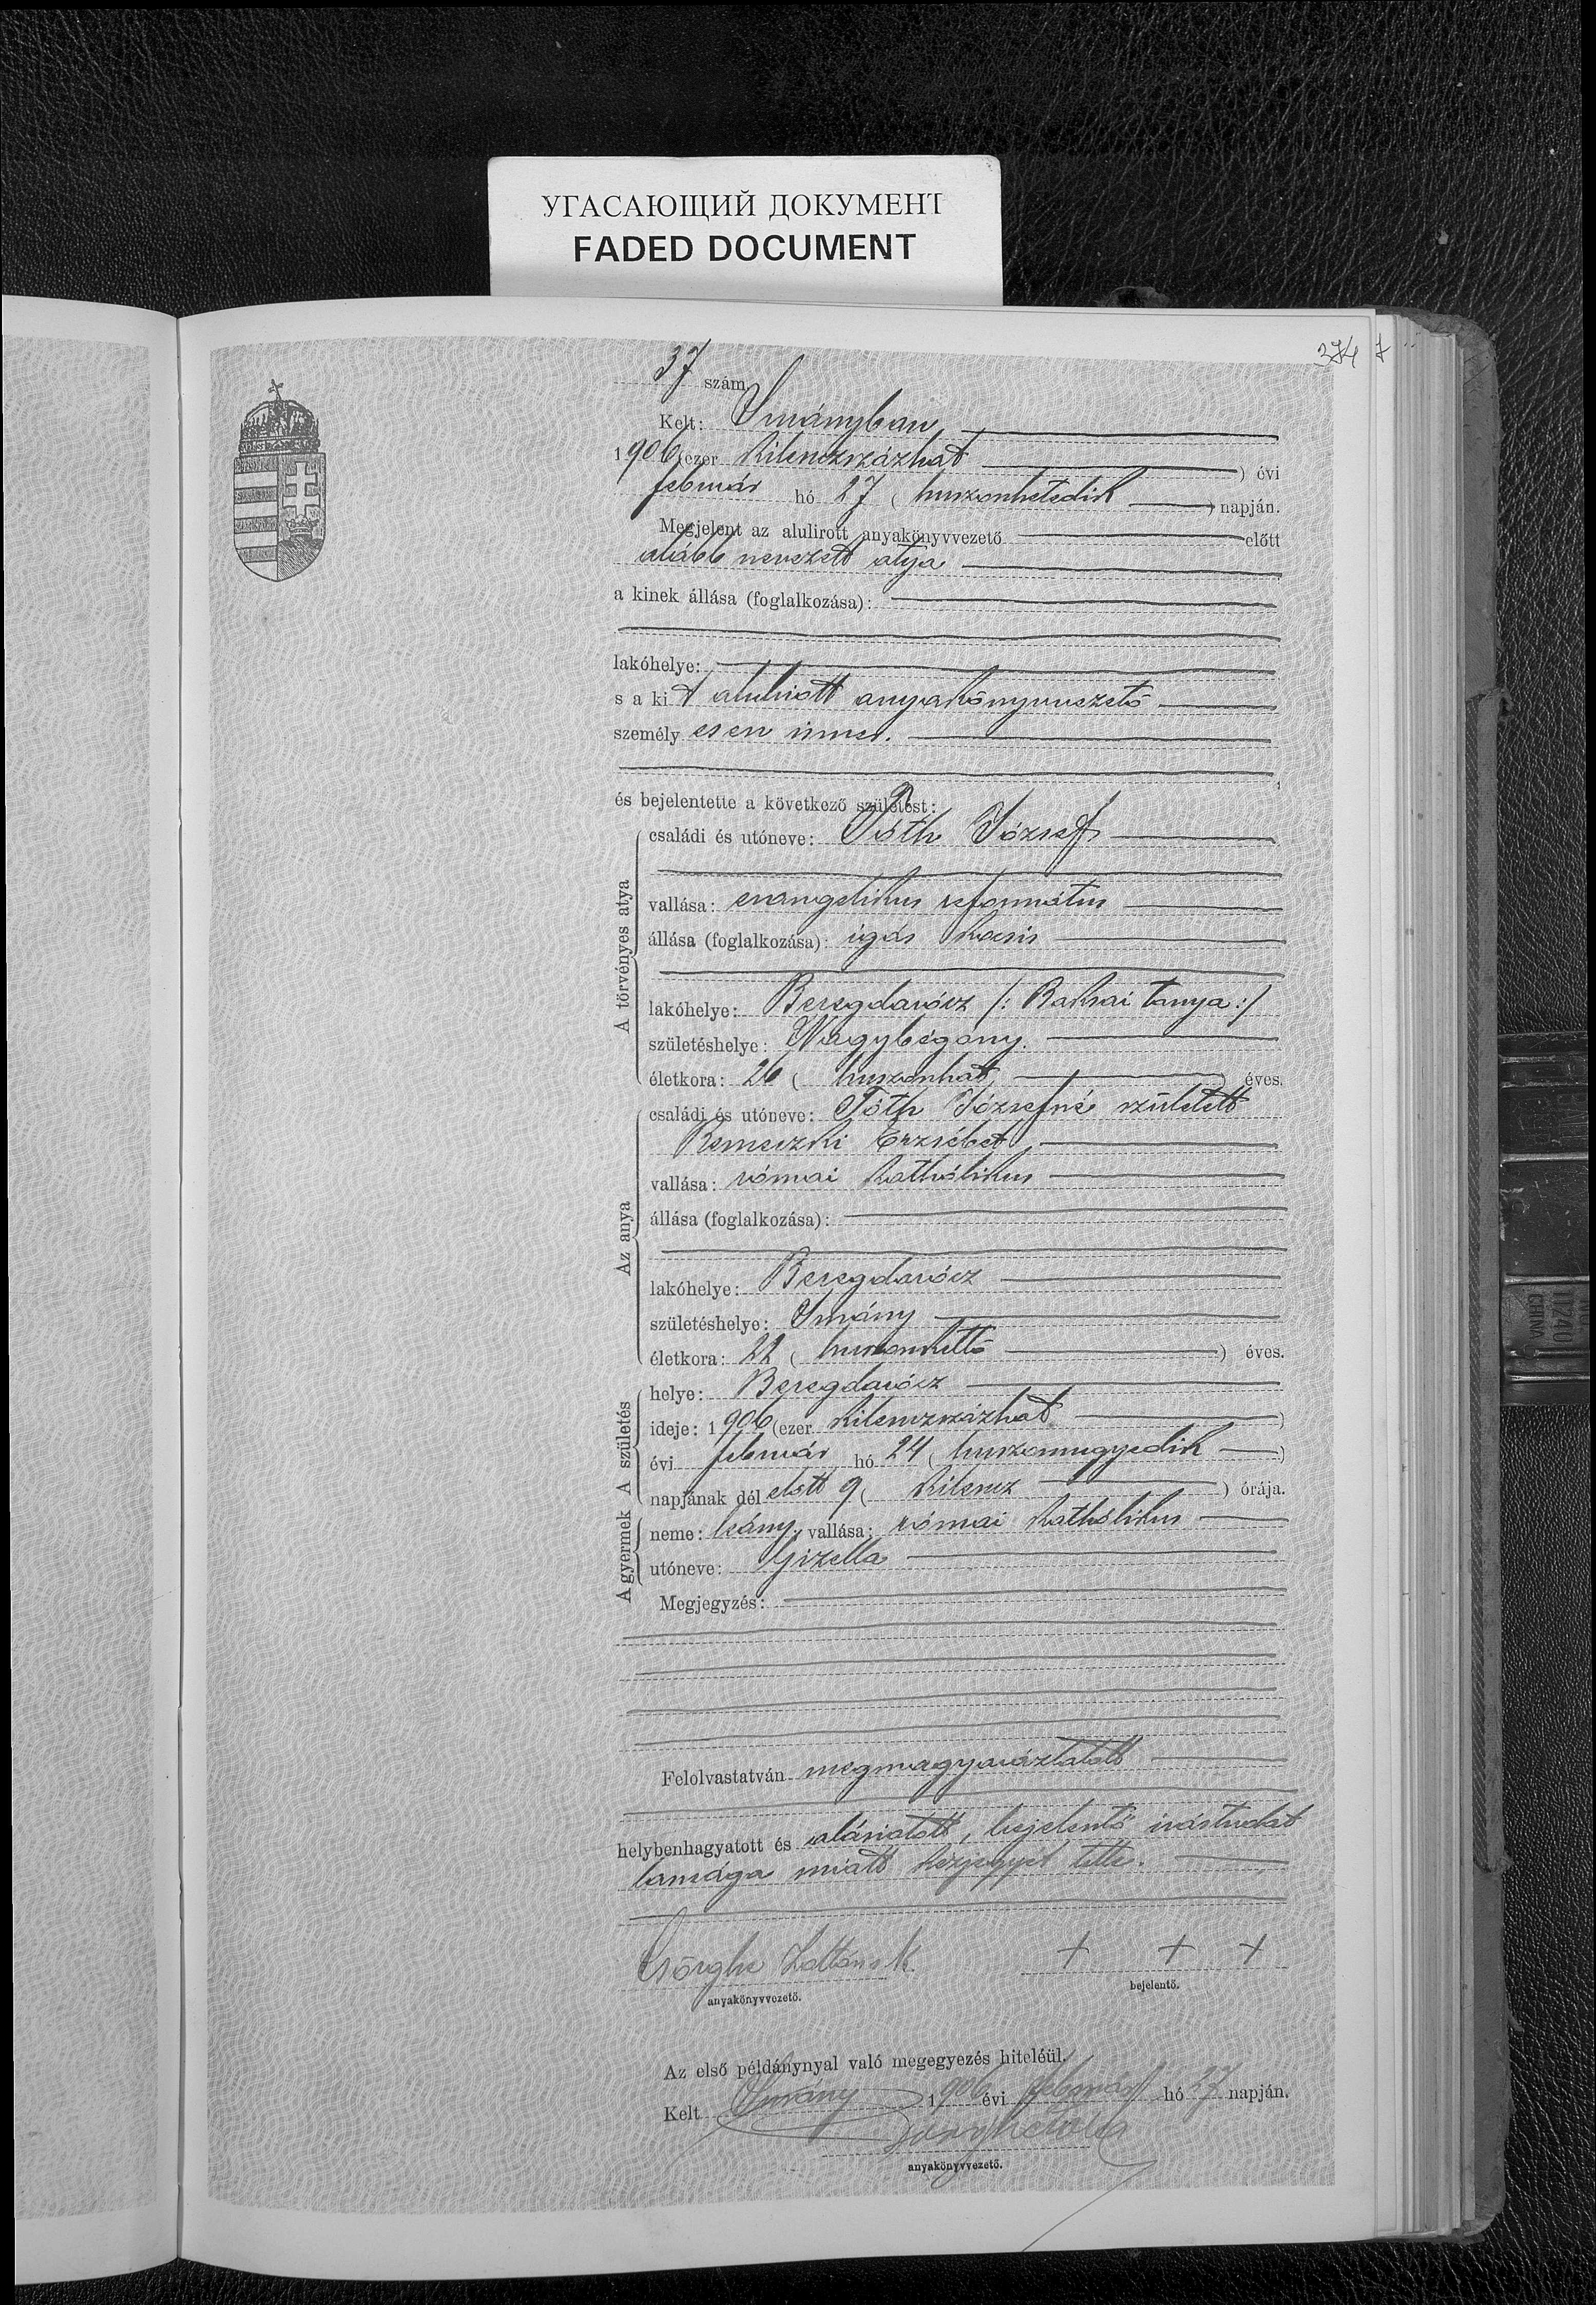 УГАСАЮЩИЙ ДОКУМЕНТ
FADED DOCUMENT
374
37 szám.
Kelt: Surányban,
1906 (ezer kilenczszázhat ) évi
február hó 27 ( huszonhetedik ) napján.
Megjelent az alulirott anyakönyvvezető előtt
alább nevezett atya
a kinek állása (foglalkozása):
lakóhelye:
s a kit alulirott anyakönyvvezető
személyesen ismer.
és bejelentette a következő születést:
A törvényes atya
családi és utóneve: Tóth József
vallása: evangelikus református
állása (foglalkozása): igás kocsis
lakóhelye: Beregdarócz /: Baksai tanya :/
születéshelye: Nagybégány.
életkora: 26 ( huszonhat ) éves.
Az anya
családi és utóneve: Tóth Józsefné született
Remeczki Erzsébet
vallása: római katholikus
állása (foglalkozása):
lakóhelye: Beregdarócz
születéshelye: Surány
életkora: 22 ( huszonkettő ) éves.
A születés
helye: Beregdarócz
ideje: 1906 (ezer kilenczszázhat )
évi február hó 24 ( huszonnegyedik )
napjának délelőtt 9 ( kilencz ) órája.
A gyermek
neme: leány, vallása: római katholikus
utóneve: Gizella
Megjegyzés:
Felolvastatván megmagyaráztatott
helybenhagyatott és aláiratott, bejelentő irástudat
lansága miatt kézjegyét tette.
+ + +
anyakönyvvezető.
bejelentő.
Az első példánynyal való megegyezés hiteléül.
Kelt Surány 1906 évi február hó 27 napján.
anyakönyvvezető.